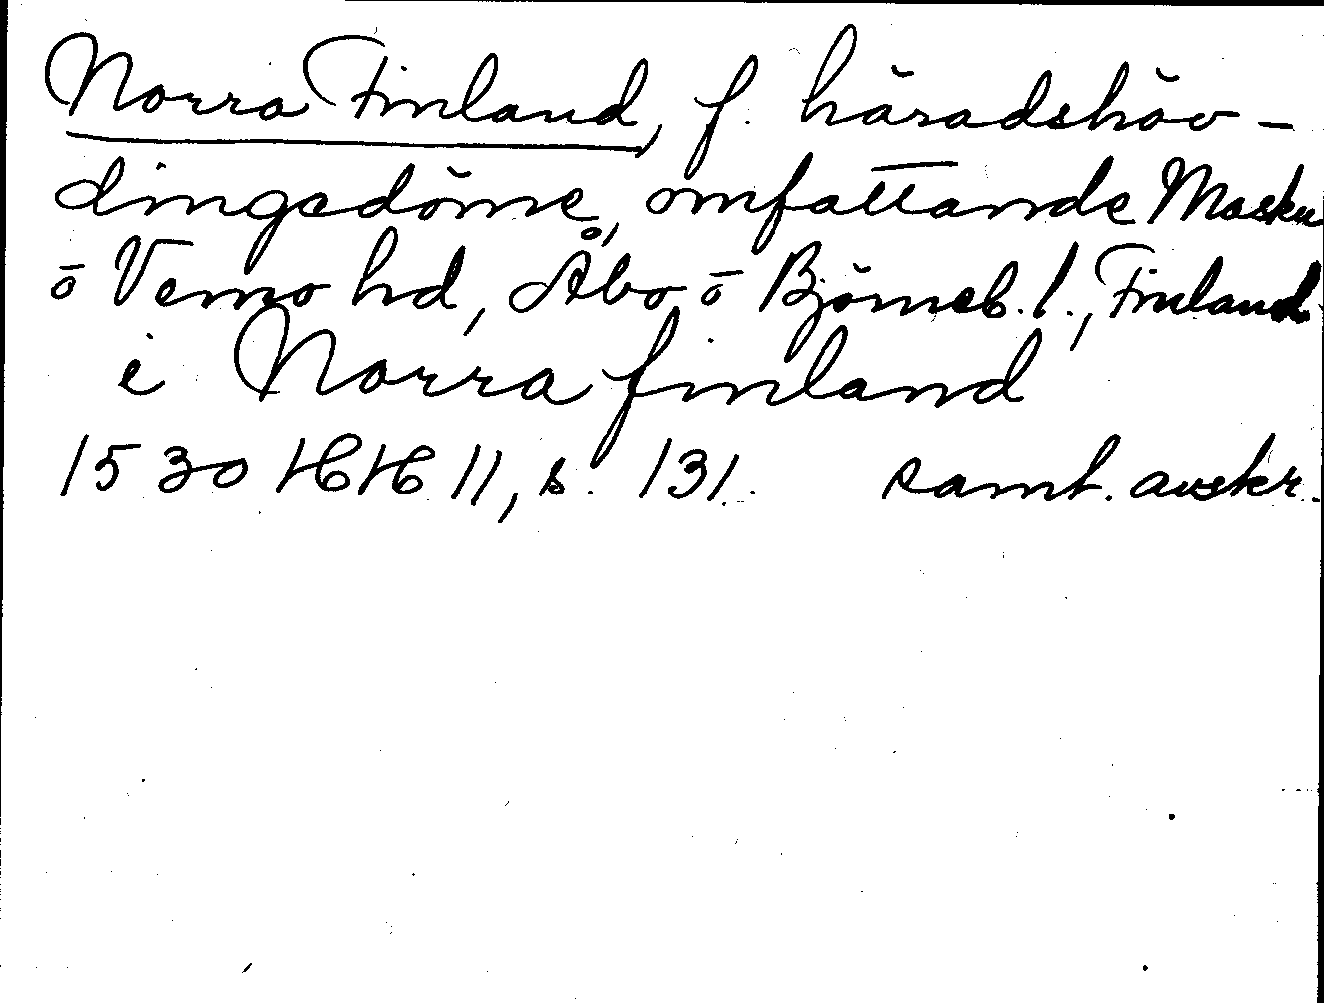 Norra Finland, f. häradshöv-
dingsdöme, omfattande Masku
ō Vemo hd, Åbo ō Björneb. l., Finland
i Norra finland
1530 HH 11, s. 131. samt. avskr.